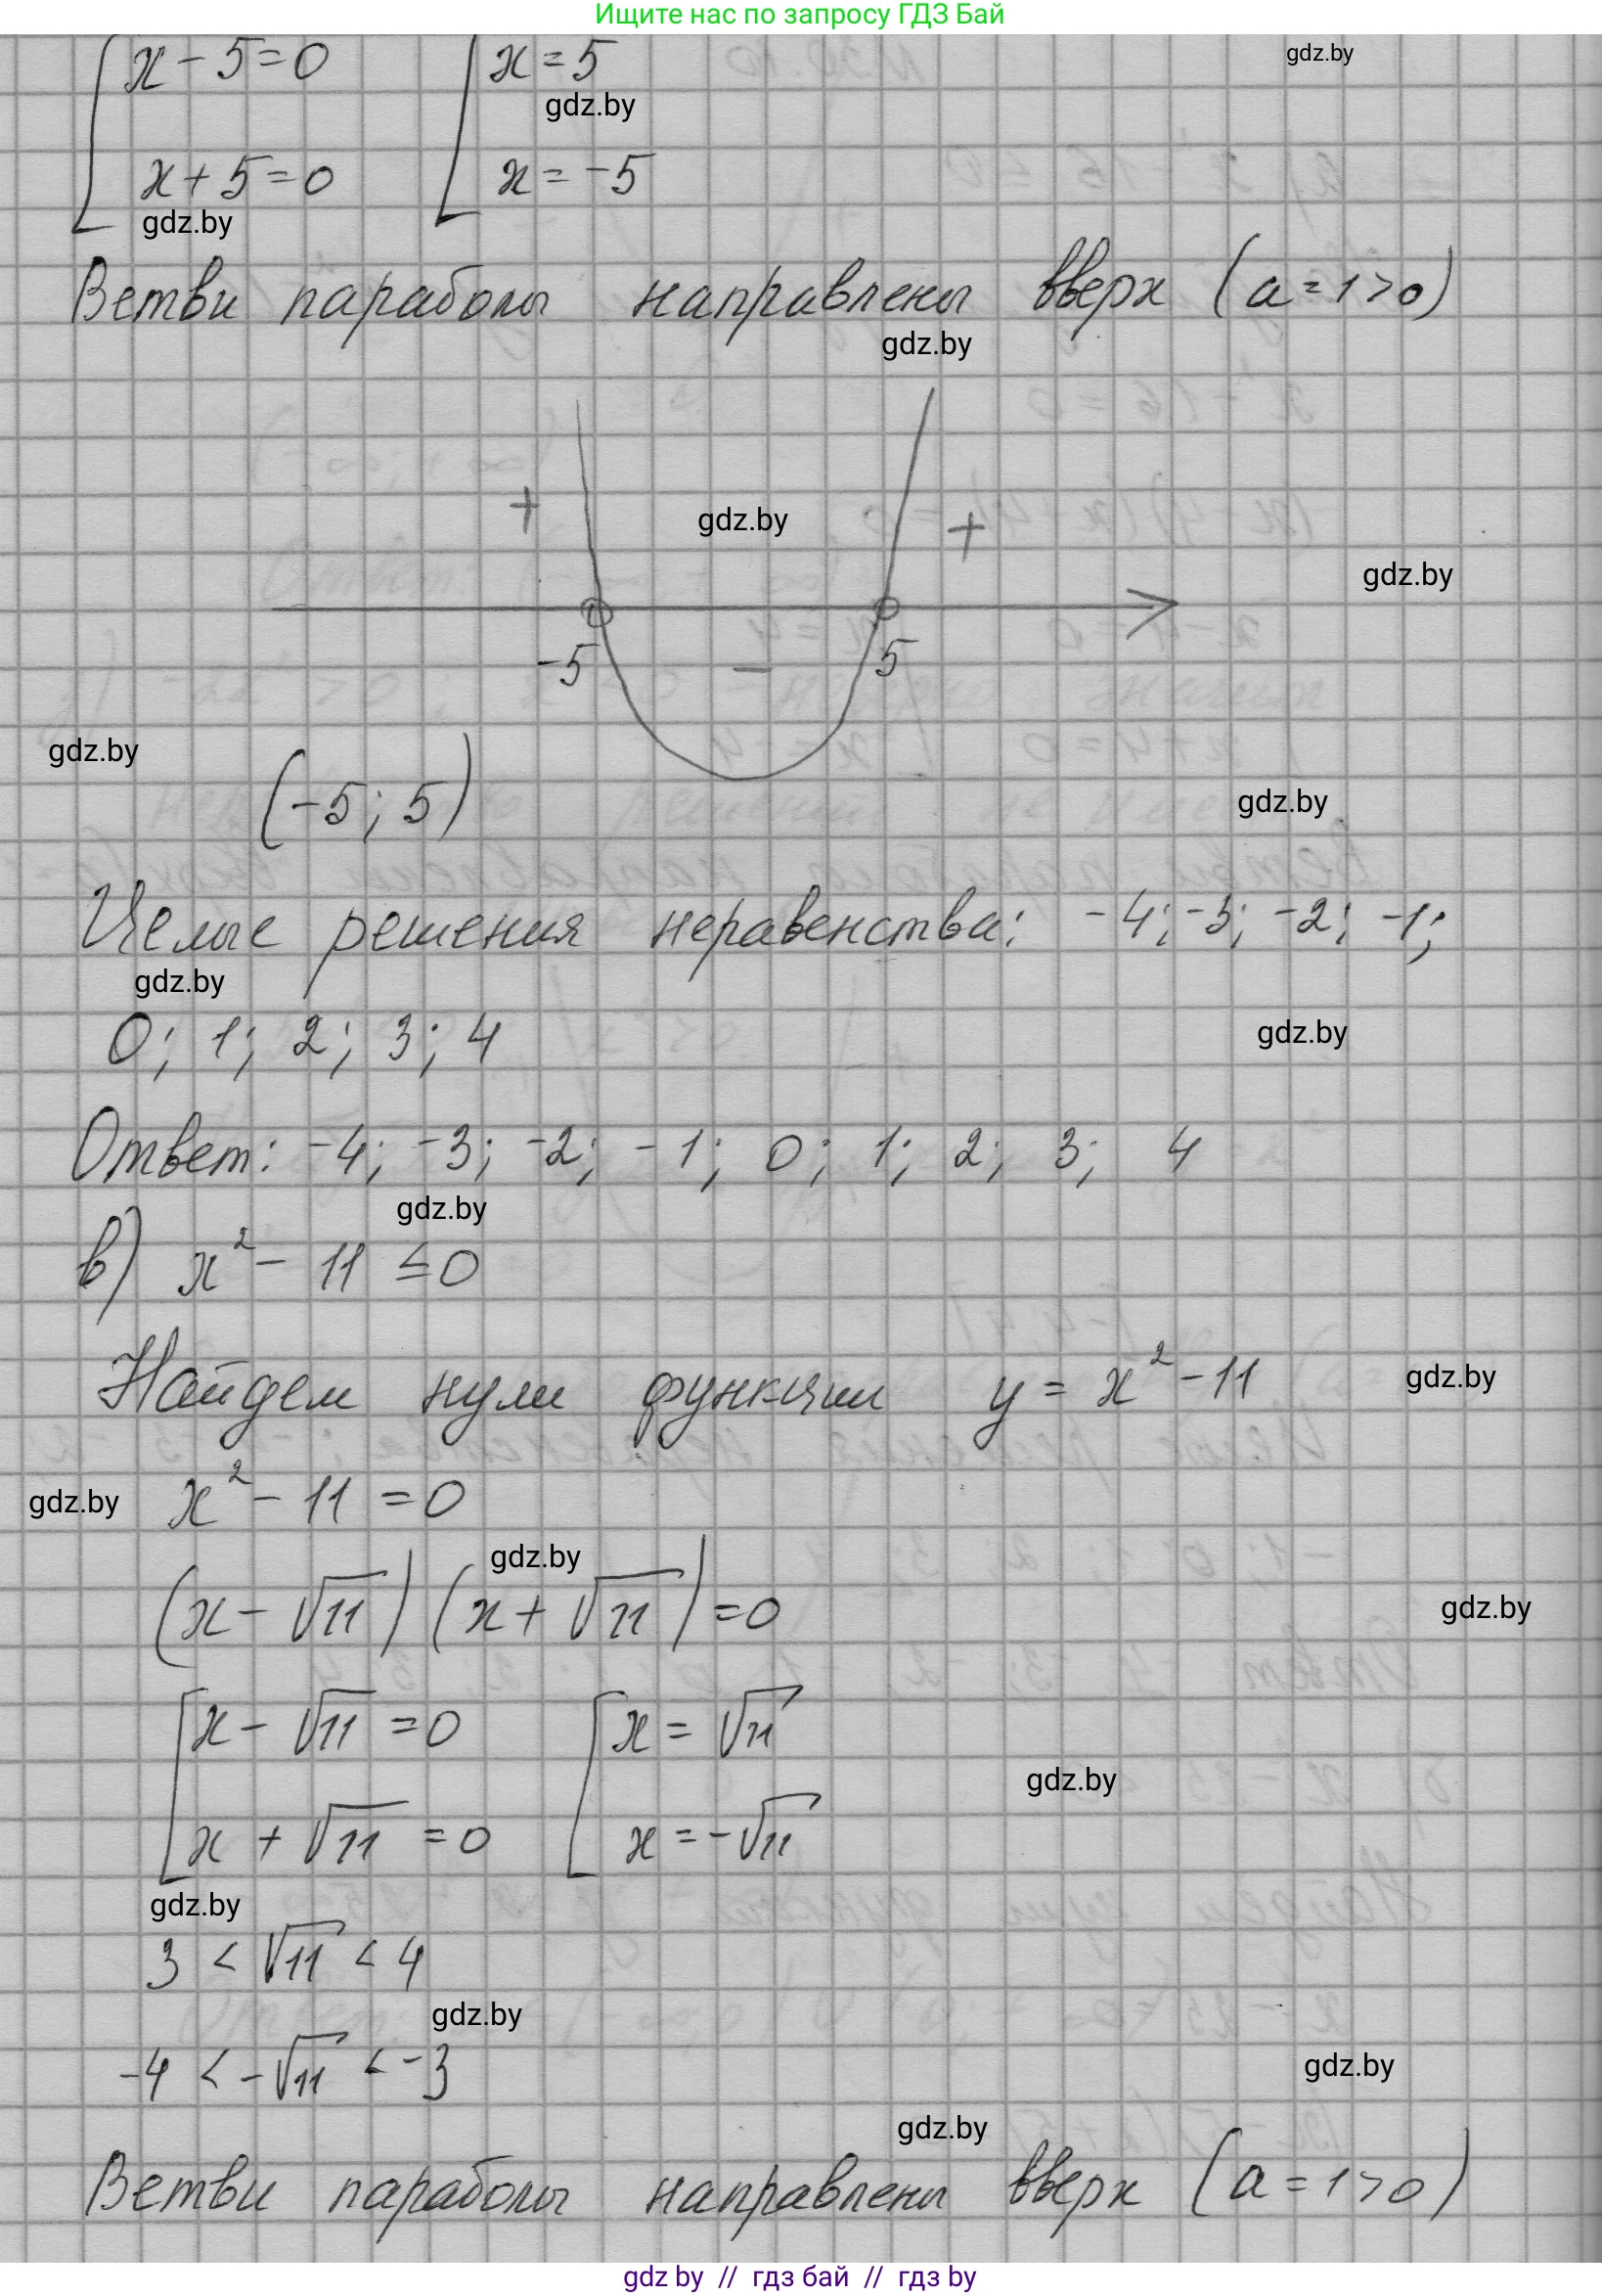 Ищите нас по запросу ГДЗ Бай
gdz.by
x - 5 = 0 x = 5
gdz.by
x + 5 = 0 x = -5
gdz.by
Ветви параболы направлены вверх (a = 1 > 0)
gdz.by
+ gdz.by +
gdz.by
-5 - 5
gdz.by
(-5; 5)
gdz.by
Целые решения неравенства: -4; -3; -2; -1;
gdz.by
0; 1; 2; 3; 4
gdz.by
Ответ: -4; -3; -2; -1; 0; 1; 2; 3; 4
gdz.by
в) x² - 11 ≤ 0
Найдем нули функции y = x² - 11
gdz.by
x² - 11 = 0
gdz.by
gdz.by
(x - √11)(x + √11) = 0
gdz.by
x - √11 = 0 x = √11
gdz.by
x + √11 = 0 x = -√11
gdz.by
3 < √11 < 4
gdz.by
-4 < -√11 < -3
gdz.by
gdz.by
Ветви параболы направлены вверх (a = 1 > 0)
gdz by // гдз бай // гдз by